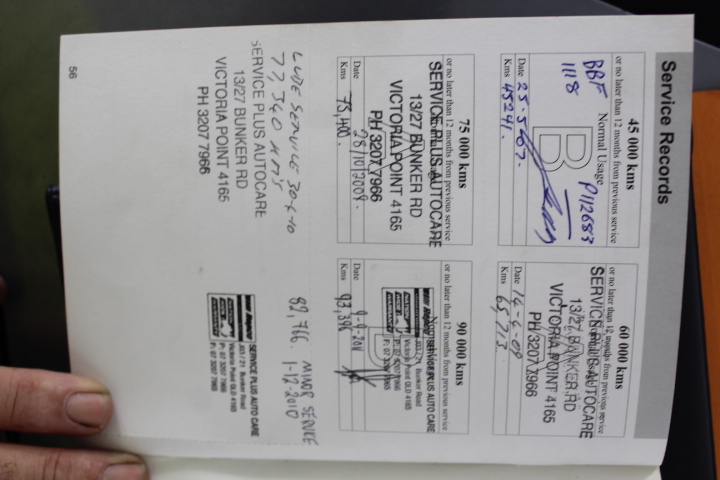 Service Records
45 000 kms
or no later than 12 months from previous service
BBF
1118
P112683
Normal Usage
B
Date 25.5.07.
Kms 45241.
60 000 kms
or no later than 12 months from previous service
SERVICE PLUS AUTOCARE
13/27 BUNKER RD
VICTORIA POINT 4165
PH 3207 7966
Date 14-4-09
Kms
75 000 kms
or no later than 12 months from previous service
SERVICE PLUS AUTOCARE
13/27 BUNKER RD
VICTORIA POINT 4165
PH 3207 7966
Date 28/10/2009.
Kms 75,400.
90 000 kms
or no later than 12 months from previous service
SERVICE PLUS AUTO CARE
Bunker Road
Victoria Point QLD 4165
Date 9-9-2011
Kms 93,396
LUBE SERVICE 30-6-10
77,340 KM'S
SERVICE PLUS AUTOCARE
13/27 BUNKER RD
VICTORIA POINT 4165
PH 3207 7966
82,766. MINOR SERVICE
1-12-2010
SERVICE PLUS AUTO CARE
Bunker Road
Victoria Point QLD 4165
P: 07 3207 7966
56